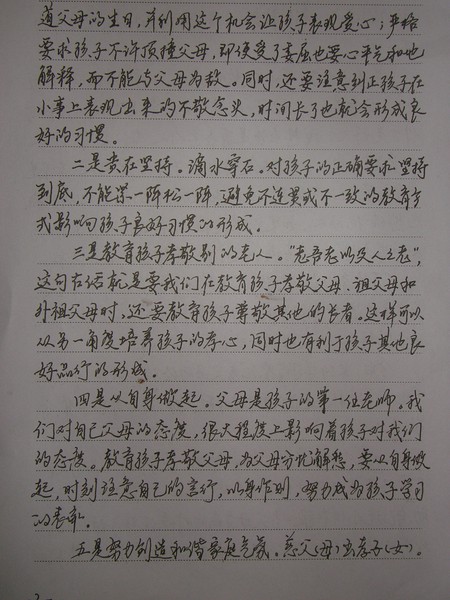 道父母的生日，并利用这个机会让孩子表现爱心；严格
要求孩子不许顶撞父母，即便受了委屈也要心平气和地
解释，而不能与父母为敌。同时，还要注意纠正孩子在
小事上表现出来的不敬念头，时间长了也就会形成良
好的习惯。
二是贵在坚持。滴水穿石。对孩子的正确要求坚持
到底，不能紧一阵松一阵，避免不连贯或不一致的教育方
式影响孩子良好习惯的形成。
三是教育孩子孝敬别的老人。"老吾老以及人之老"，
这句古话就是要我们在教育孩子孝敬父母、祖父母和
外祖父母时，还要教育孩子尊敬其他的长者。这样可以
从另一角度培养孩子的孝心，同时也有利于孩子其他良
好品行的形成。
四是从自身做起。父母是孩子的第一任老师。我
们对自己父母的态度，很大程度上影响着孩子对我们
的态度。教育孩子孝敬父母，为父母分忧解愁，要从自身做
起，时刻注意自己的言行，以身作则，努力成为孩子学习
的表率。
五是努力创造和谐家庭气氛。慈父(母)出孝子(女)。